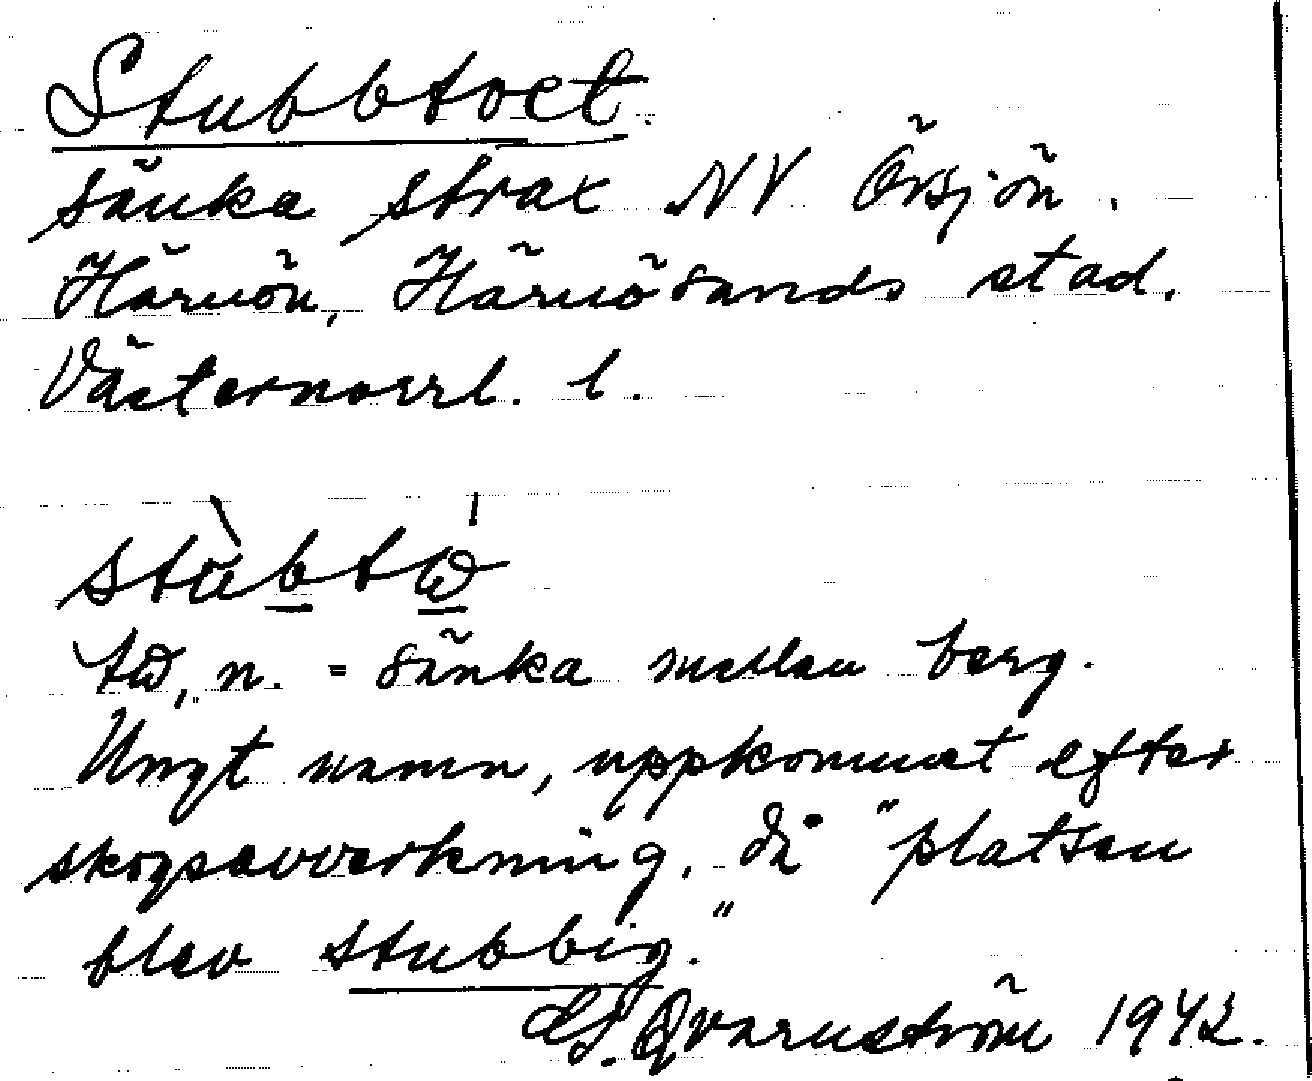 Stubbtoet.
sänka strax NV Örsjön.
Härnön, Härnösands stad.
Västernorrl. l.
stùbtὼ
tω, n. = sänka mellan berg.
Ungt namn, uppkommet efter
skogsavverkning, då "platsen
blev stubbig."
Qvarnström 1942.